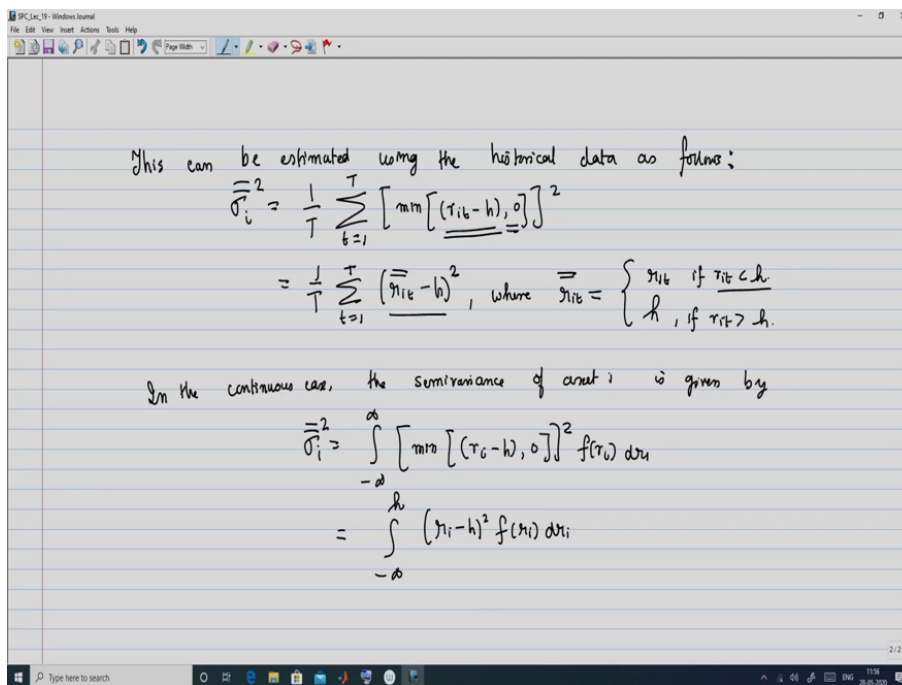 SPC_Lec_19 - Windows Journal
File Edit View Insert Actions Tools Help
Page Width
This can be estimated using the historical data as follows:
σ̿ᵢ² = 1/T ∑_{t=1}^{T} [min[(r_{it} - h), 0]]²
= 1/T ∑_{t=1}^{T} (r̿_{it} - h)², where r̿_{it} = { r_{it} if r_{it} < h.
h, if r_{it} > h.
In the continuous case, the semivariance of asset i is given by
σ̿ᵢ² = ∫_{-∞}^{∞} [min[(rᵢ - h), 0]]² f(rᵢ) drᵢ
= ∫_{-∞}^{h} (rᵢ - h)² f(rᵢ) drᵢ
2/2
Type here to search
ENG
11:56
28-05-2020